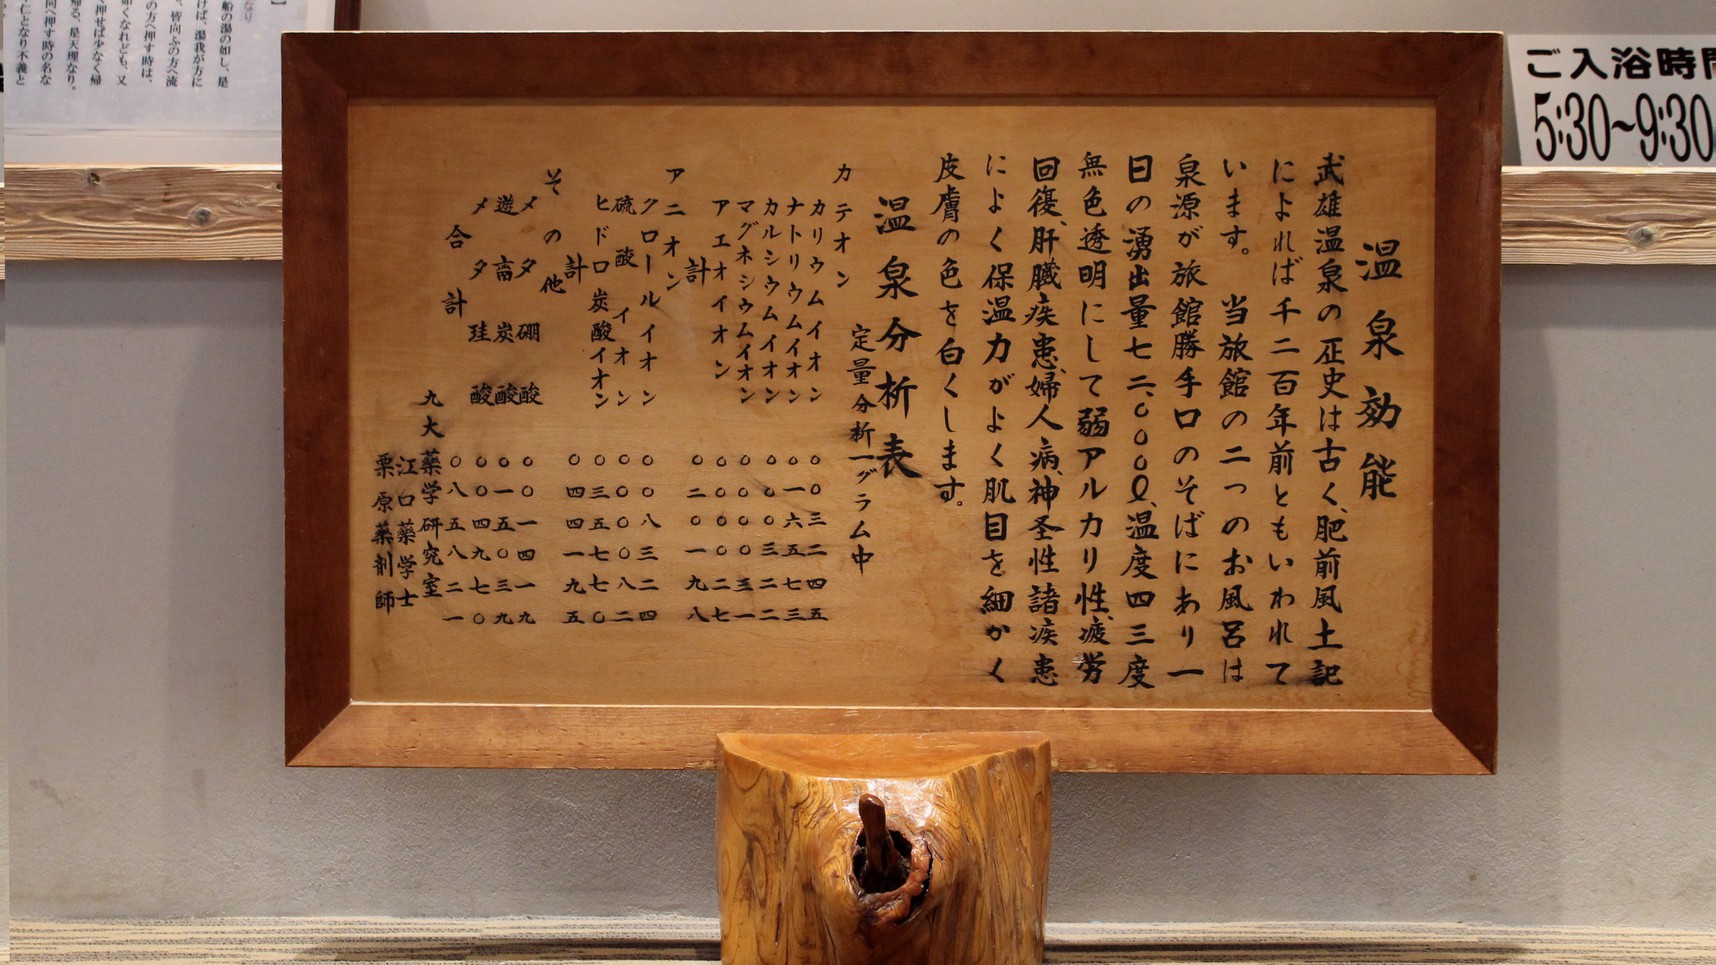 ご入浴時間
5:30~9:30
温泉効能
武雄温泉の正史は古く、肥前風土記
によれば千二百年前ともいわれて
います。 当旅館の二つのお風呂は
泉源が旅館勝手口のそばにあり一
日の湧出量七二、〇〇〇ℓ、温度四三度
無色透明にして弱アルカリ性、疲労
回復、肝臓疾患、婦人病、神圣性諸疾患
によく保温力がよく肌目を細かく
皮膚の色を白くします。
温泉分析表
定量分析一グラム中
カテオン
カリウムイオン 〇〇三二四五
ナトリウムイオン 〇一六五七三
カルシウムイオン 〇〇〇三二二
マグネシウムイオン 〇〇〇〇三一
アエオイオン 〇〇〇〇二七
計 〇二〇一九八
アニオン
クロールイオン 〇〇八三二四
硫酸イオン 〇〇〇〇八二
ヒドロ炭酸イオン 〇三五七七〇
計 〇四四一九五
その他
メタ硼酸 〇〇一四一九
遊离炭酸 〇一五〇三九
メタ珪酸 〇〇四九七〇
合計 〇八五八二一
九大薬学研究室
江口薬学士
栗原薬剤師
船の湯の如し、是
けば、湯我が方に
、皆向ふの方へ流
の方へ押す時は、
如くなれども、又
く押せば少なく帰
帰る、是天理なり。
向へ押す時の名な
仁となり不義と